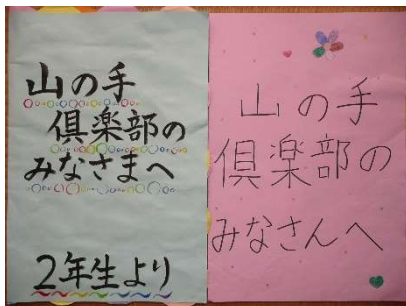 山の手
倶楽部の
みなさまへ
2年生より
山の手
倶楽部の
みなさんへ